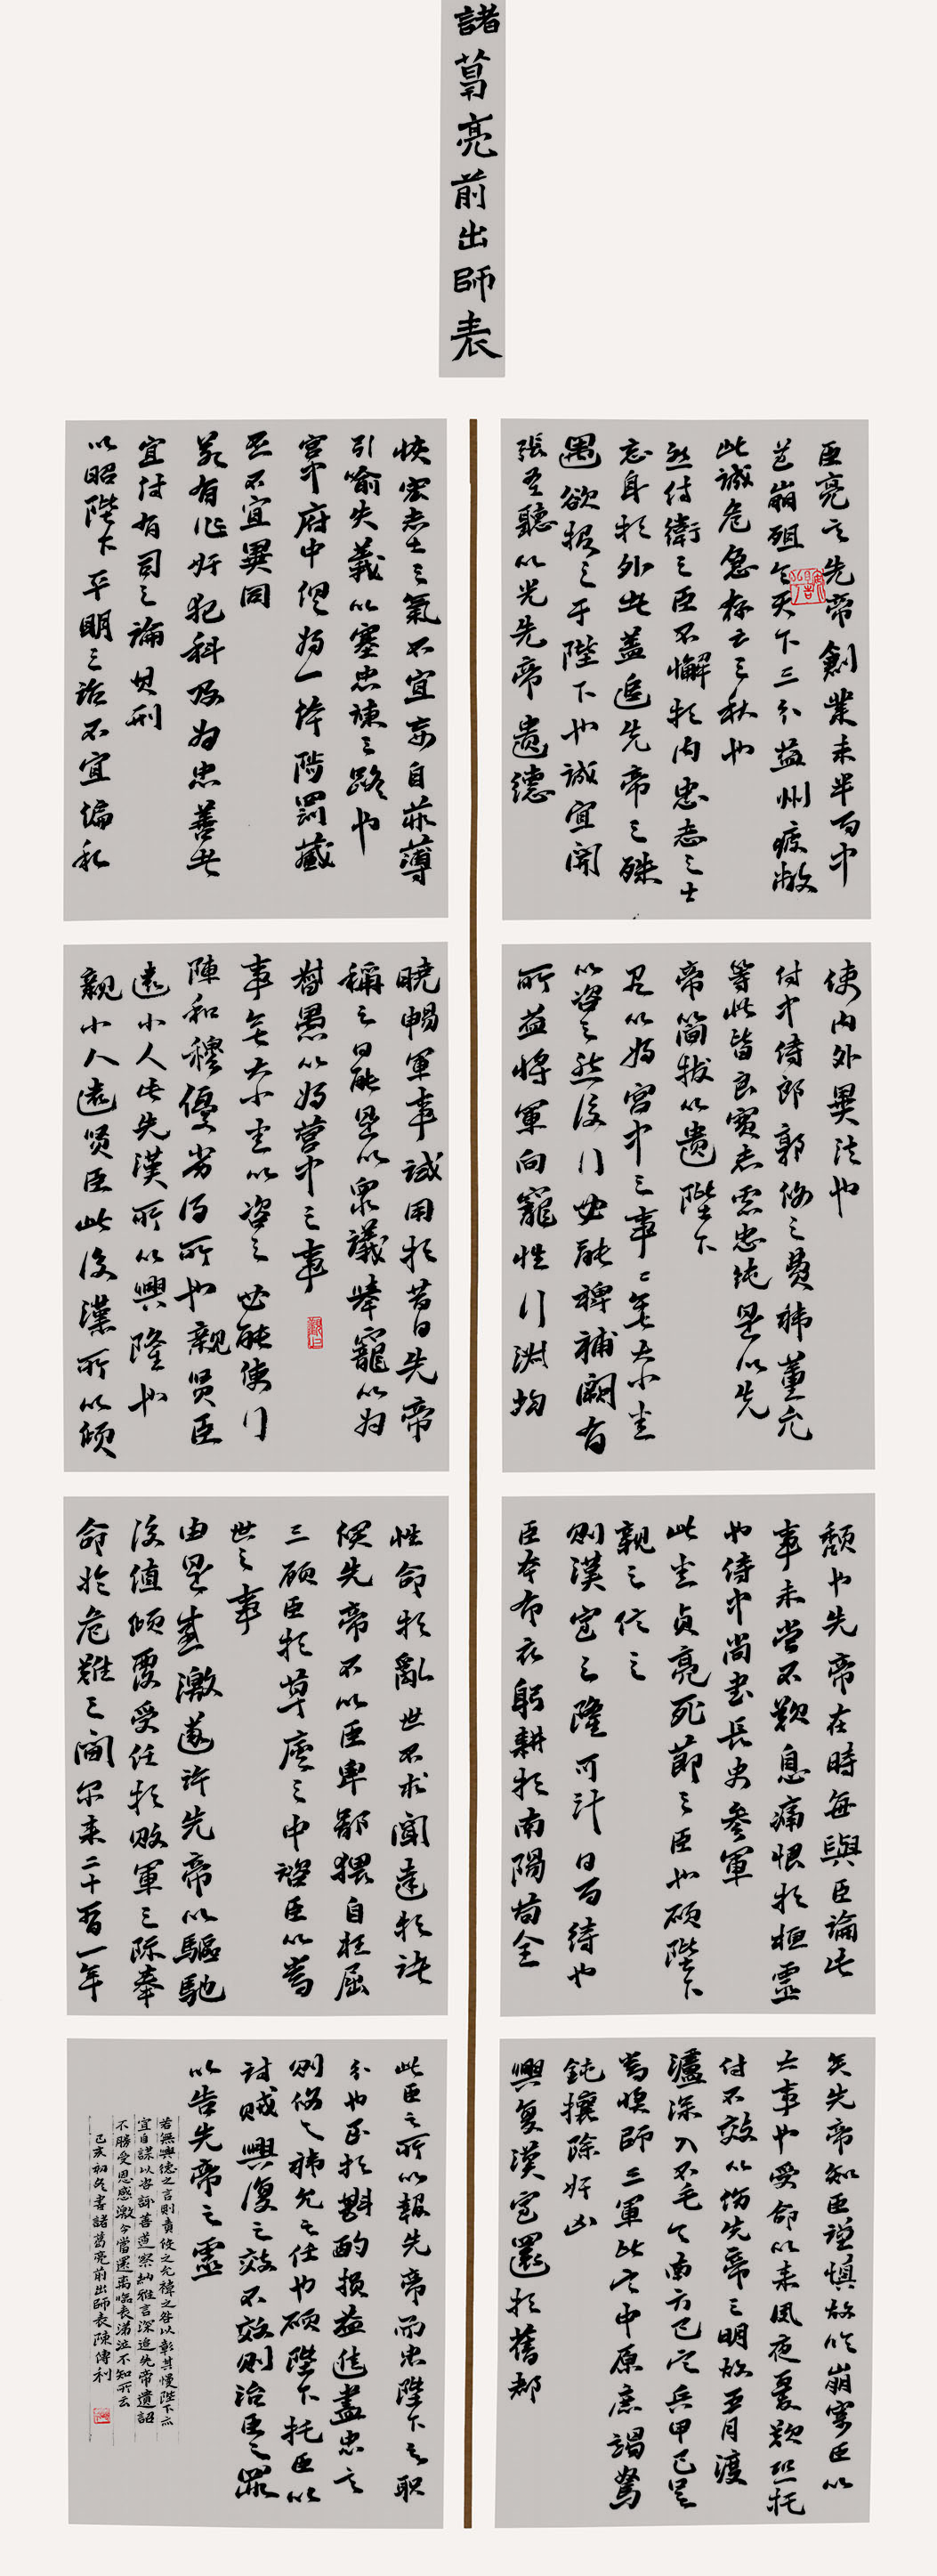 諸葛亮前出師表
臣亮言先帝創業未半而中
道崩殂今天下三分益州疲敝
此誠危急存亡之秋也
然侍衛之臣不懈於内忠志之士
忘身於外此蓋追先帝之殊
遇欲報之于陛下也誠宜開
張聖聽以光先帝遗德
恢宏志士之氣不宜妄自菲薄
引喻失義以塞忠諫之路也
宮中府中俱为一體陟罰臧
否不宜異同
若有作奸犯科及为忠善者
宜付有司之論其刑
以昭陛下平明之治不宜偏私
使内外異法也
侍中侍郎郭攸之費禕董允
等此皆良實志慮忠純是以先
帝簡拔以遗陛下
愚以为宮中之事事無大小悉
以咨之然後行必能裨補闕有
所益將軍向寵性行淑均
曉暢軍事試用於昔日先帝
稱之曰能是以衆議舉寵以为
督愚以为營中之事
事無大小悉以咨之必能使行
陣和穆優劣得所也親贤臣
遠小人此先漢所以興隆也
親小人遠贤臣此後漢所以倾
頹也先帝在時每與臣論此
事未嘗不歎息痛恨於桓靈
也侍中尚書長史參軍
此悉貞亮死節之臣也願陛下
親之信之
則漢室之隆可計日而待也
臣本布衣躬耕於南陽苟全
性命於亂世不求聞達於諸
侯先帝不以臣卑鄙猥自枉屈
三顧臣於草廬之中諮臣以當
世之事
由是感激遂許先帝以驅馳
後值倾覆受任於敗軍之際奉
命於危難之間尔来二十有一年
矣先帝知臣謹慎故临崩寄臣以
大事也受命以来夙夜憂歎恐托
付不效以伤先帝之明故五月渡
瀘深入不毛今南方已定兵甲已足
當獎師三軍北定中原庶竭駑
鈍攘除奸凶
興复漢室還於舊都
此臣之所以報先帝而忠陛下之职
分也至於斟酌損益進盡忠言
則攸之禕允之任也願陛下托臣以
討賊興復之效不效則治臣之罪
以告先帝之靈
若無興德之言則責攸之允禕之咎以彰其慢陛下亦
宜自謀以咨諏善道察納雅言深追先帝遺詔
不勝受恩感激今當遠離臨表涕泣不知所云
己亥初冬書諸葛亮前出師表陳傳利